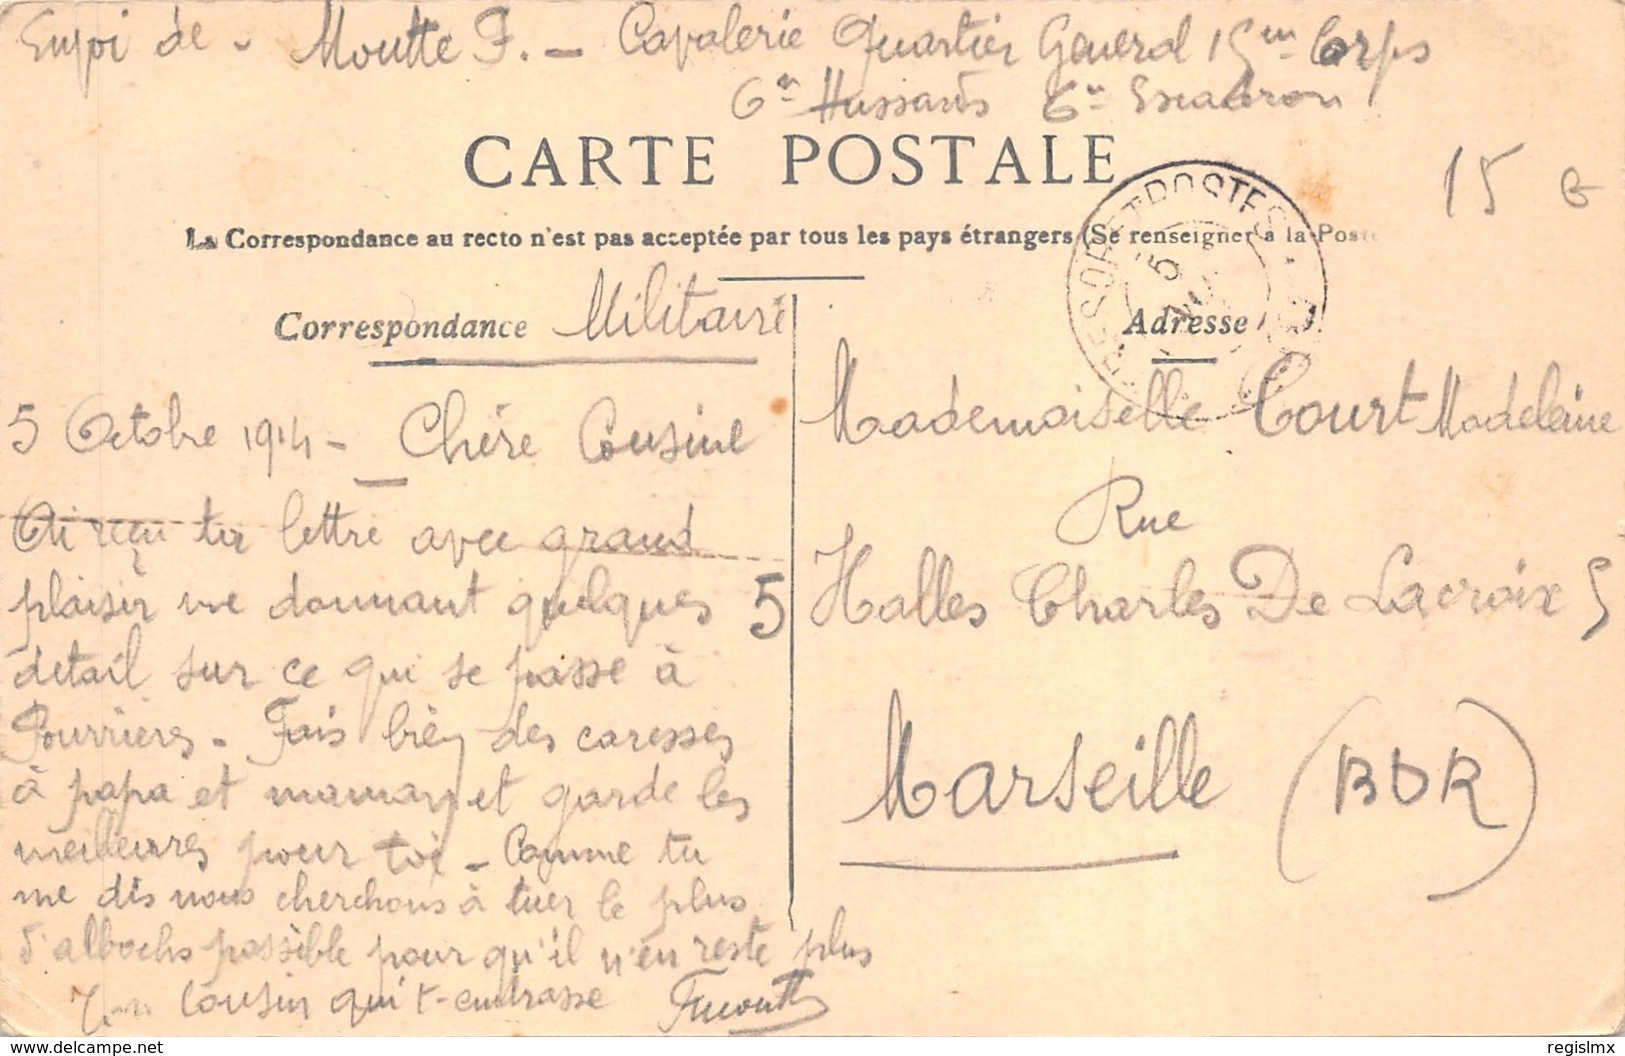 Envoi de - Moutte F. - Cavalerie Quartier General 15em Corps
6em Hussards 6em Escadron
CARTE POSTALE
15
La Correspondance au recto n'est pas acceptée par tous les pays étrangers (Se renseigner à la Poste
TRESOR ET POSTES
5
Correspondance Militaire
Adresse
5 Octobre 1914 - Chère Cousine
Ai reçu ta lettre avec grand
plaisir me donnant quelques
detail sur ce qui se passe à
Pourrières - Fais bien des caresses
à papa et maman et garde les
meilleures pour toi - Comme tu
me dis nous cherchons à tuer le plus
d'albochs possible pour qu'il n'en reste plus
Ton Cousin qui t'embrasse
5
Mademoiselle Court Madeleine
Rue
Halles Charles De Lacroix 5
Marseille (BDR)
delcampe.net
regislmx